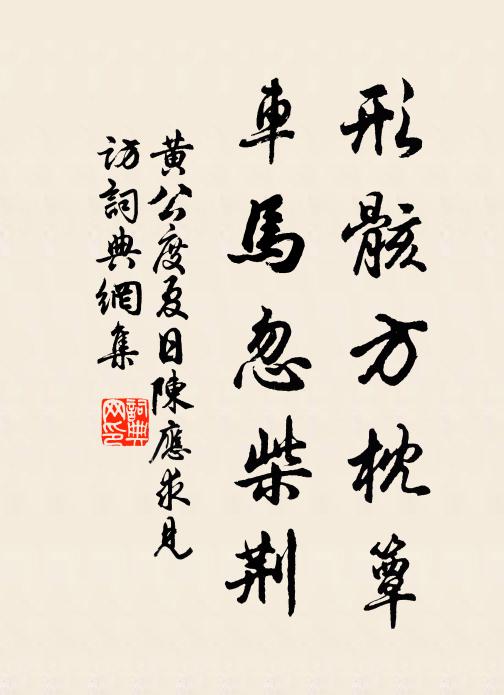 形骸方枕簟
車馬忽柴荆
黄公度夏日陳應求見
訪詞典網集
詞典网印